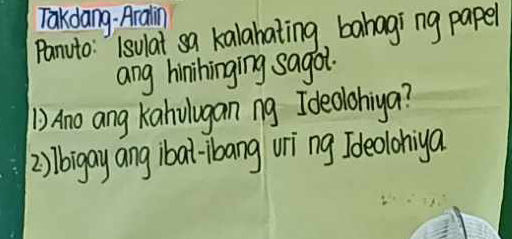 Takdang-Aralin
Panuto: Isulat sa kalahating bahagi ng papel
ang hinihinging sagot.
1) Ano ang kahulugan ng Ideolohiya?
2) Ibigay ang ibat-ibang uri ng Ideolohiya